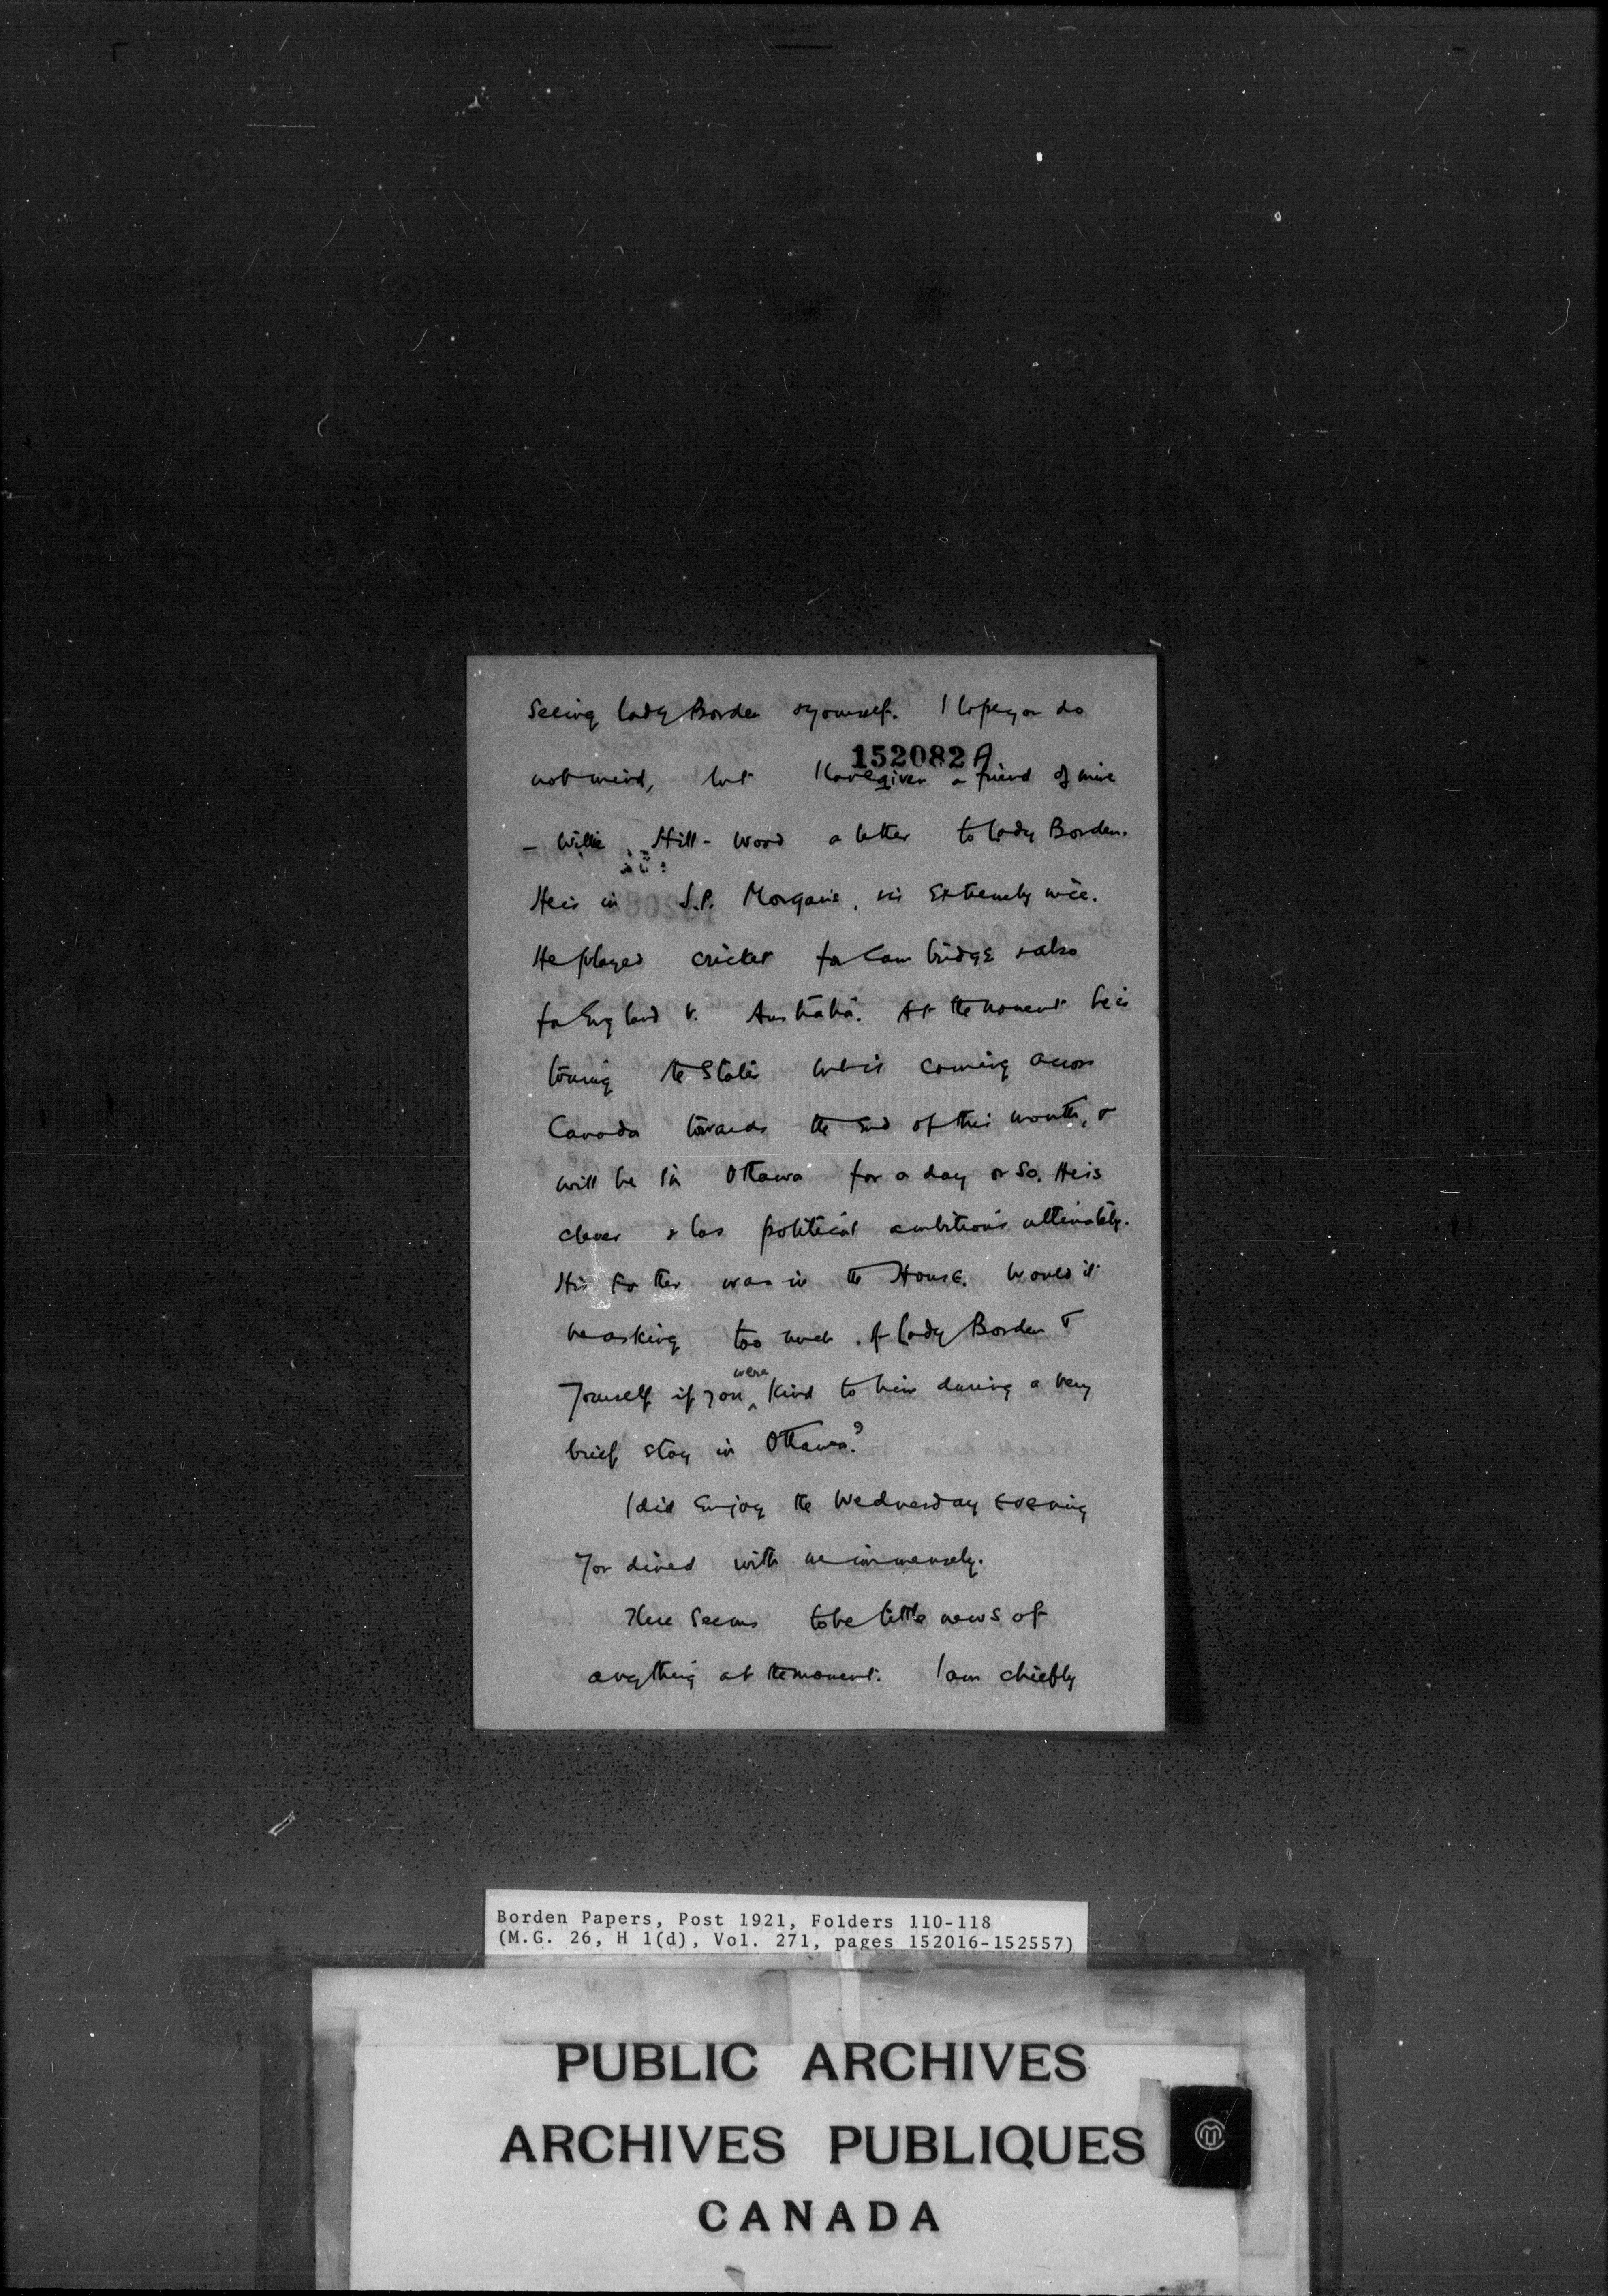 Seeing Lady Borden & yourself. I hope you do
152082 A
not mind, but I have given a friend of mine
- Willie Hill-Wood a letter to Lady Borden.
He is in J.P. Morgans, & is extremely nice.
He played cricket for Cambridge & also
for England v. Australia. At the moment he is
touring the States but is coming across
Canada towards the end of this month, &
will be in Ottawa for a day or so. He is
clever & has political ambitions ultimately.
His father was in the House. Would it
be asking too much of Lady Borden &
yourself if you were kind to him during a very
brief stay in Ottawa?
I did enjoy the Wednesday evening
you dined with me immensely.
There seems to be little news of
anything at the moment. I am chiefly
Borden Papers, Post 1921, Folders 110-118
(M.G. 26, H 1(d), Vol. 271, pages 152016-152557)
PUBLIC ARCHIVES
ARCHIVES PUBLIQUES
CANADA